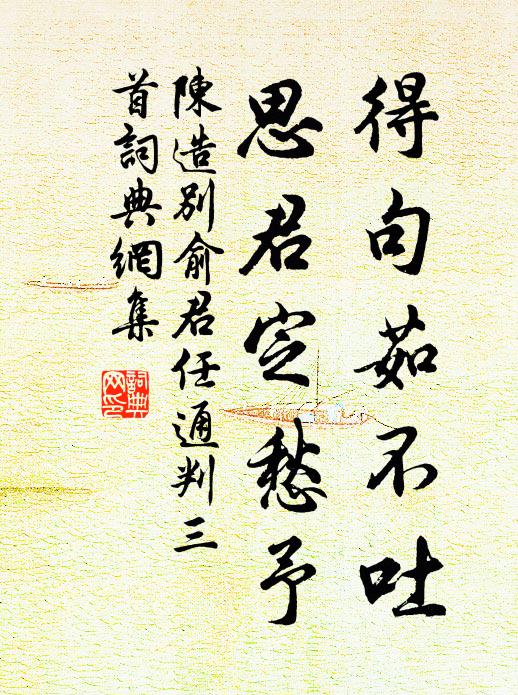 得句茹不吐
思君定愁予
陳造別俞君任通判三
首詞典網集
詞典
网印